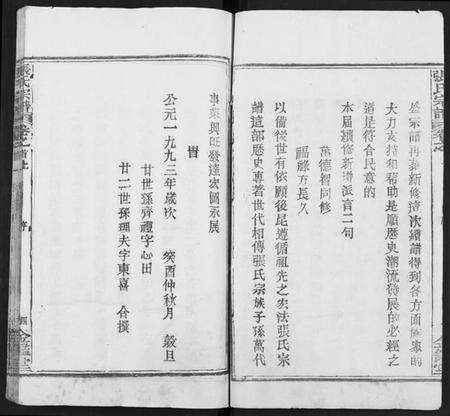 張氏宗譜
卷之
公宗譜再
新修持次續譜得到各方面族衆的
大力支持和幫助是順歷史潮流發展的必經之
道是符合民意的
本屆續修新增派言二句
萬德智同修
福祿方長久
以備後世有依願後昆遵循祖先之宏法張氏宗
譜這部歷史專著世代相傳張氏宗族子孫萬代
事業興旺發達宏圖永展
旹
公元一九九三年歲次 癸酉仲秋月 穀旦
廿世孫齊禮字心田
廿二世孫瑚夫字東喜 仝撰
張氏宗譜
卷之首上
序
四